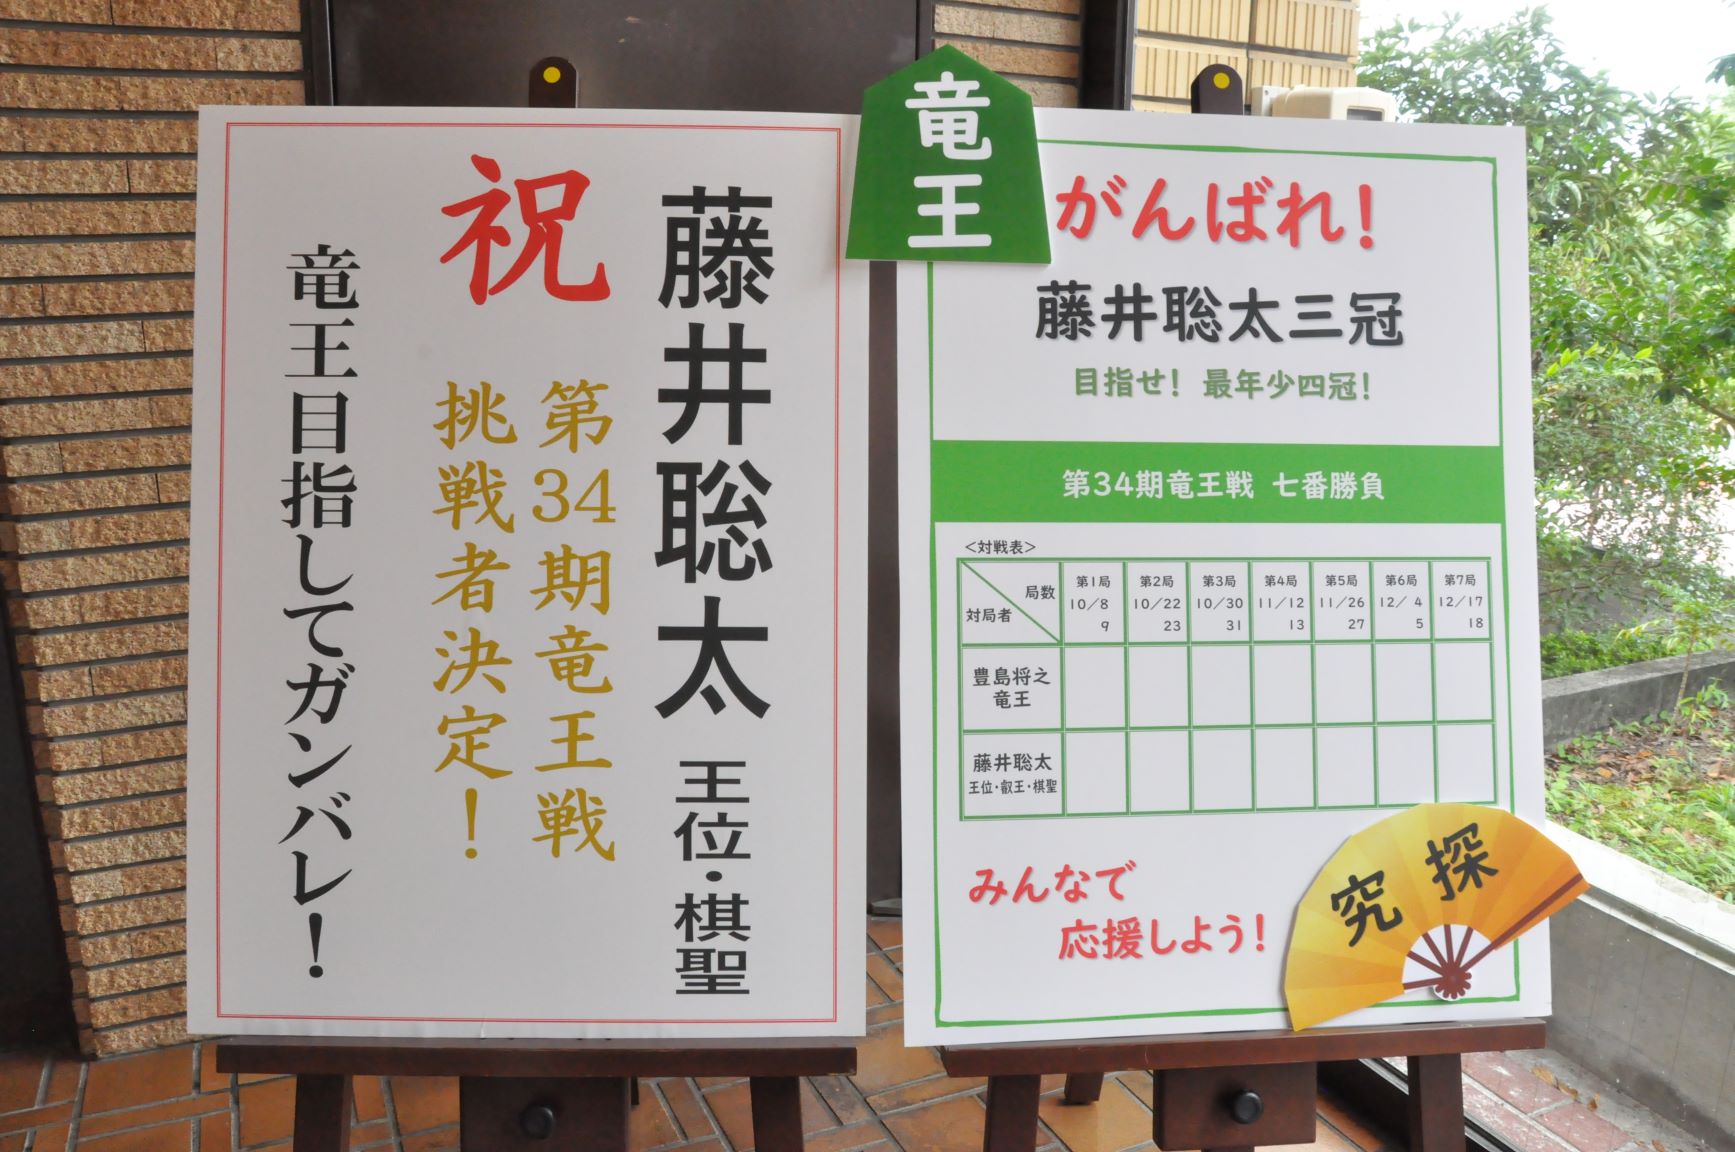 藤井聡太 王位・棋聖
祝
第34期竜王戦
挑戦者決定！
竜王目指してガンバレ！
竜王
がんばれ！
藤井聡太三冠
目指せ！ 最年少四冠！
第34期竜王戦 七番勝負
＜対戦表＞
局数 第1局 第2局 第3局 第4局 第5局 第6局 第7局
対局者 10／8 10／22 10／30 11／12 11／26 12／4 12／17
9 23 31 13 27 5 18
豊島将之
竜王
藤井聡太
王位・叡王・棋聖
みんなで
応援しよう！
探究